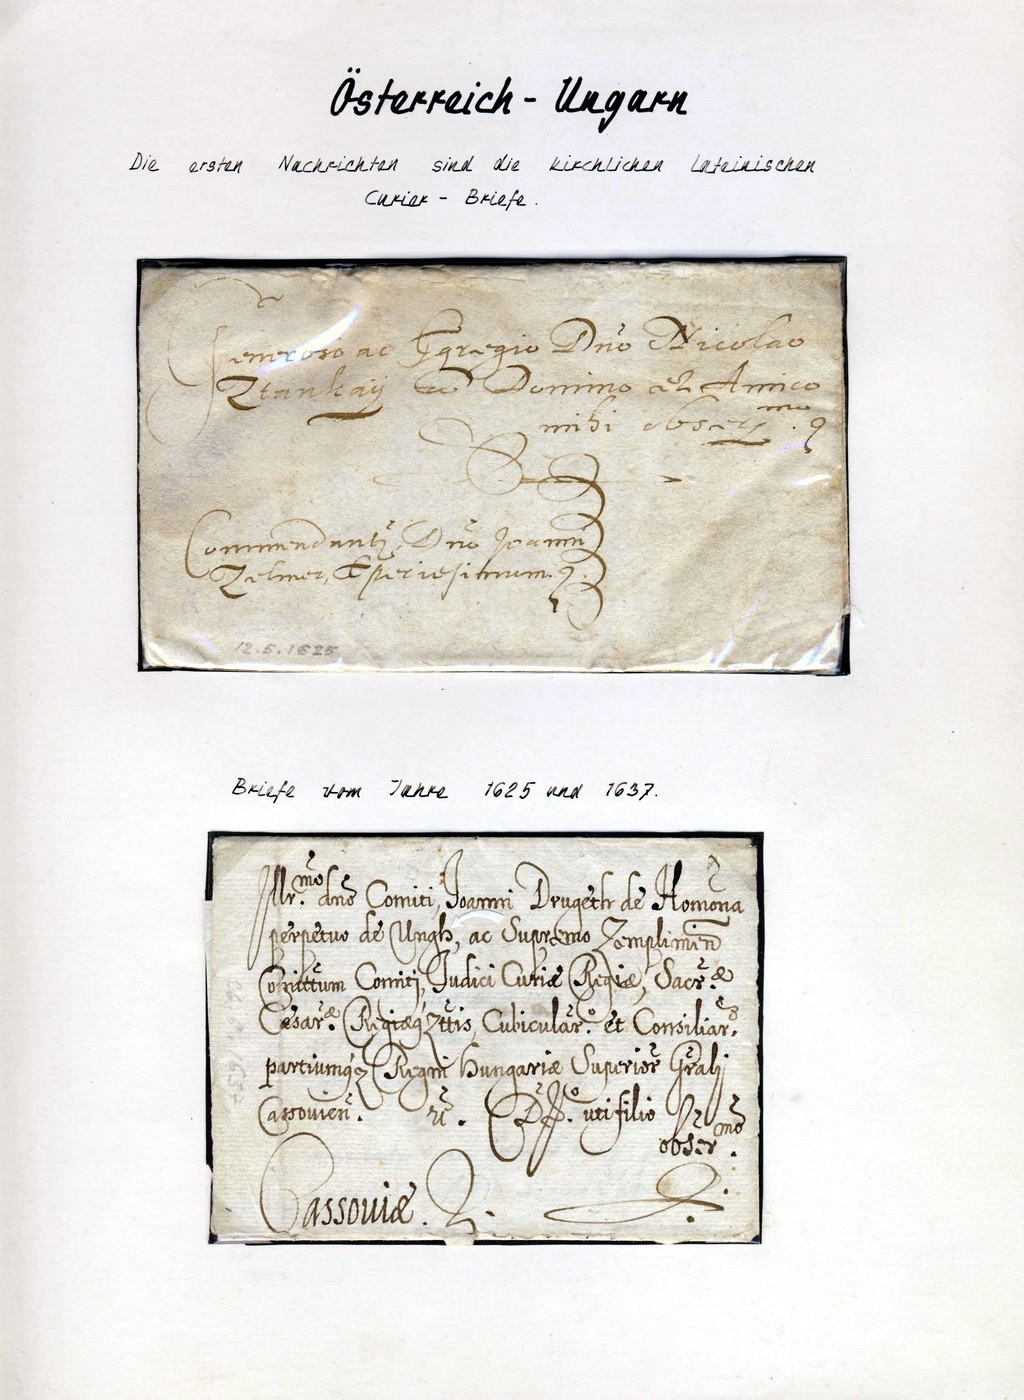 Österreich - Ungarn
Die ersten Nachrichten sind die kirchlichen lateinischen
Curier - Briefe.
Generoso ac Egregio Dno Nicolao
Ztankaij Domino et Amico
mihi obser mo
Commendant Dno Joanni
Zelmer, Eperiesinum.
12.5.1625
Briefe vom Jahre 1625 und 1637.
Illr.mo dno Comiti, Joanni Drugeth de Homona
perpetuo de Ungh, ac Supremo Zemplimien
Comiti, Judici Curiæ Regiæ, Sacr.æ
Cæsar.æ Regiæq ttis, Cubicular.o et Consiliar.
partiumq Regni Hungariæ Superior Grali
Cassovien. uti filio
obser.mo
Cassoviæ.